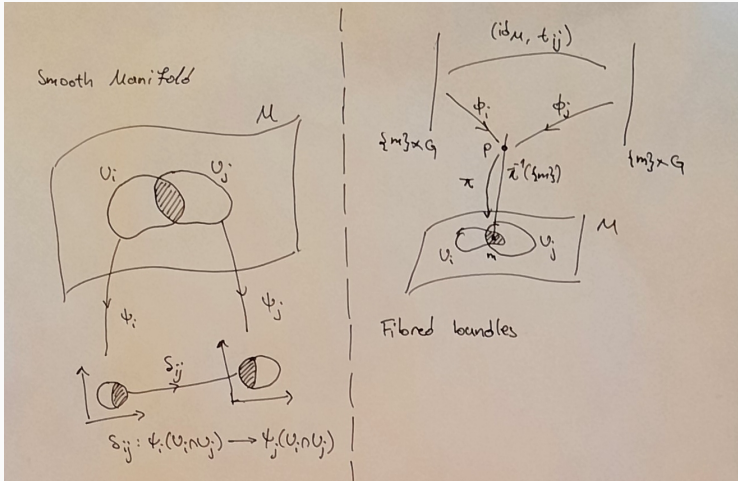 Smooth Manifold
M
U_i U_j
ψ_i ψ_j
δ_ij
δ_ij : ψ_i(U_i∩U_j) ⟶ ψ_j(U_i∩U_j)
(id_M, t_ij)
ϕ_i ϕ_j
{m}×G {m}×G
p
π π⁻¹({m})
M
U_i m U_j
Fibred bundles